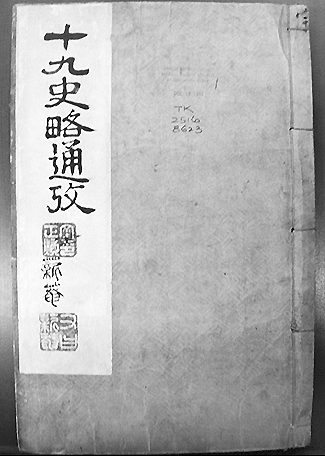 十九史略通攷
1
TK
2516
8623